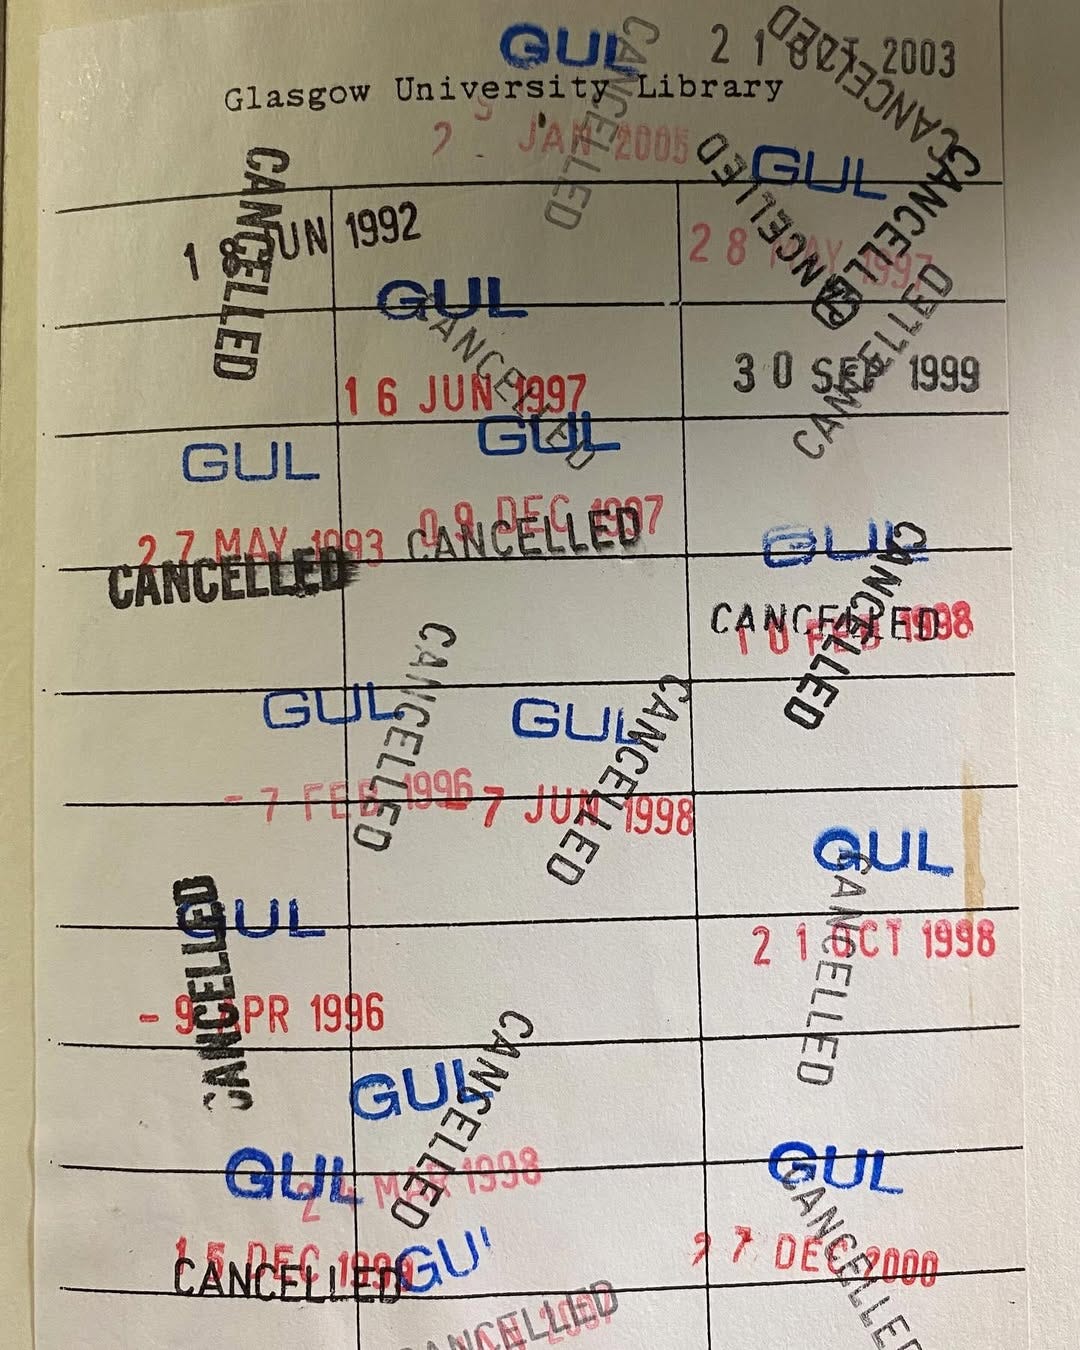 GUL
21 OCT 2003
CANCELLED
CANCELLED
Glasgow University Library
JAN 2005
CANCELLED
GUL
CANCELLED
CANCELLED
CANCELLED
18 JUN 1992
28 MAY 1997
CANCELLED
GUL
CANCELLED
16 JUN 1997
30 SEP 1999
CANCELLED
GUL
GUL
27 MAY 1993
09 DEC 1997
CANCELLED
CANCELLED
GUL
CANCELLED
10 FEB 1998
CANCELLED
GUL
CANCELLED
GUL
CANCELLED
-7 FEB 1996
-7 JUN 1998
GUL
CANCELLED
GUL
CANCELLED
21 OCT 1998
-9 APR 1996
CANCELLED
GUL
CANCELLED
GUL
24 MAR 1998
GUL
CANCELLED
15 DEC
CANCELLED
GU
27 DEC 2000
CANCELLED